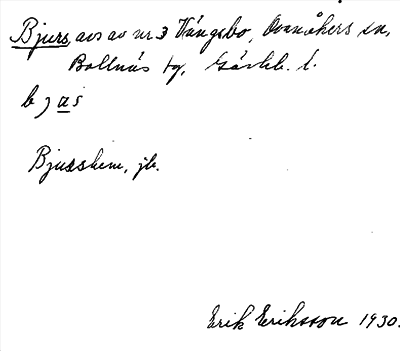 Bjurs, avs av nr 3 Vängsbo, Ovanåkers sn,
Bollnäs tg, Gävleb. l.
b j u s
Bjusshem, jb.
Erik Eriksson 1930.